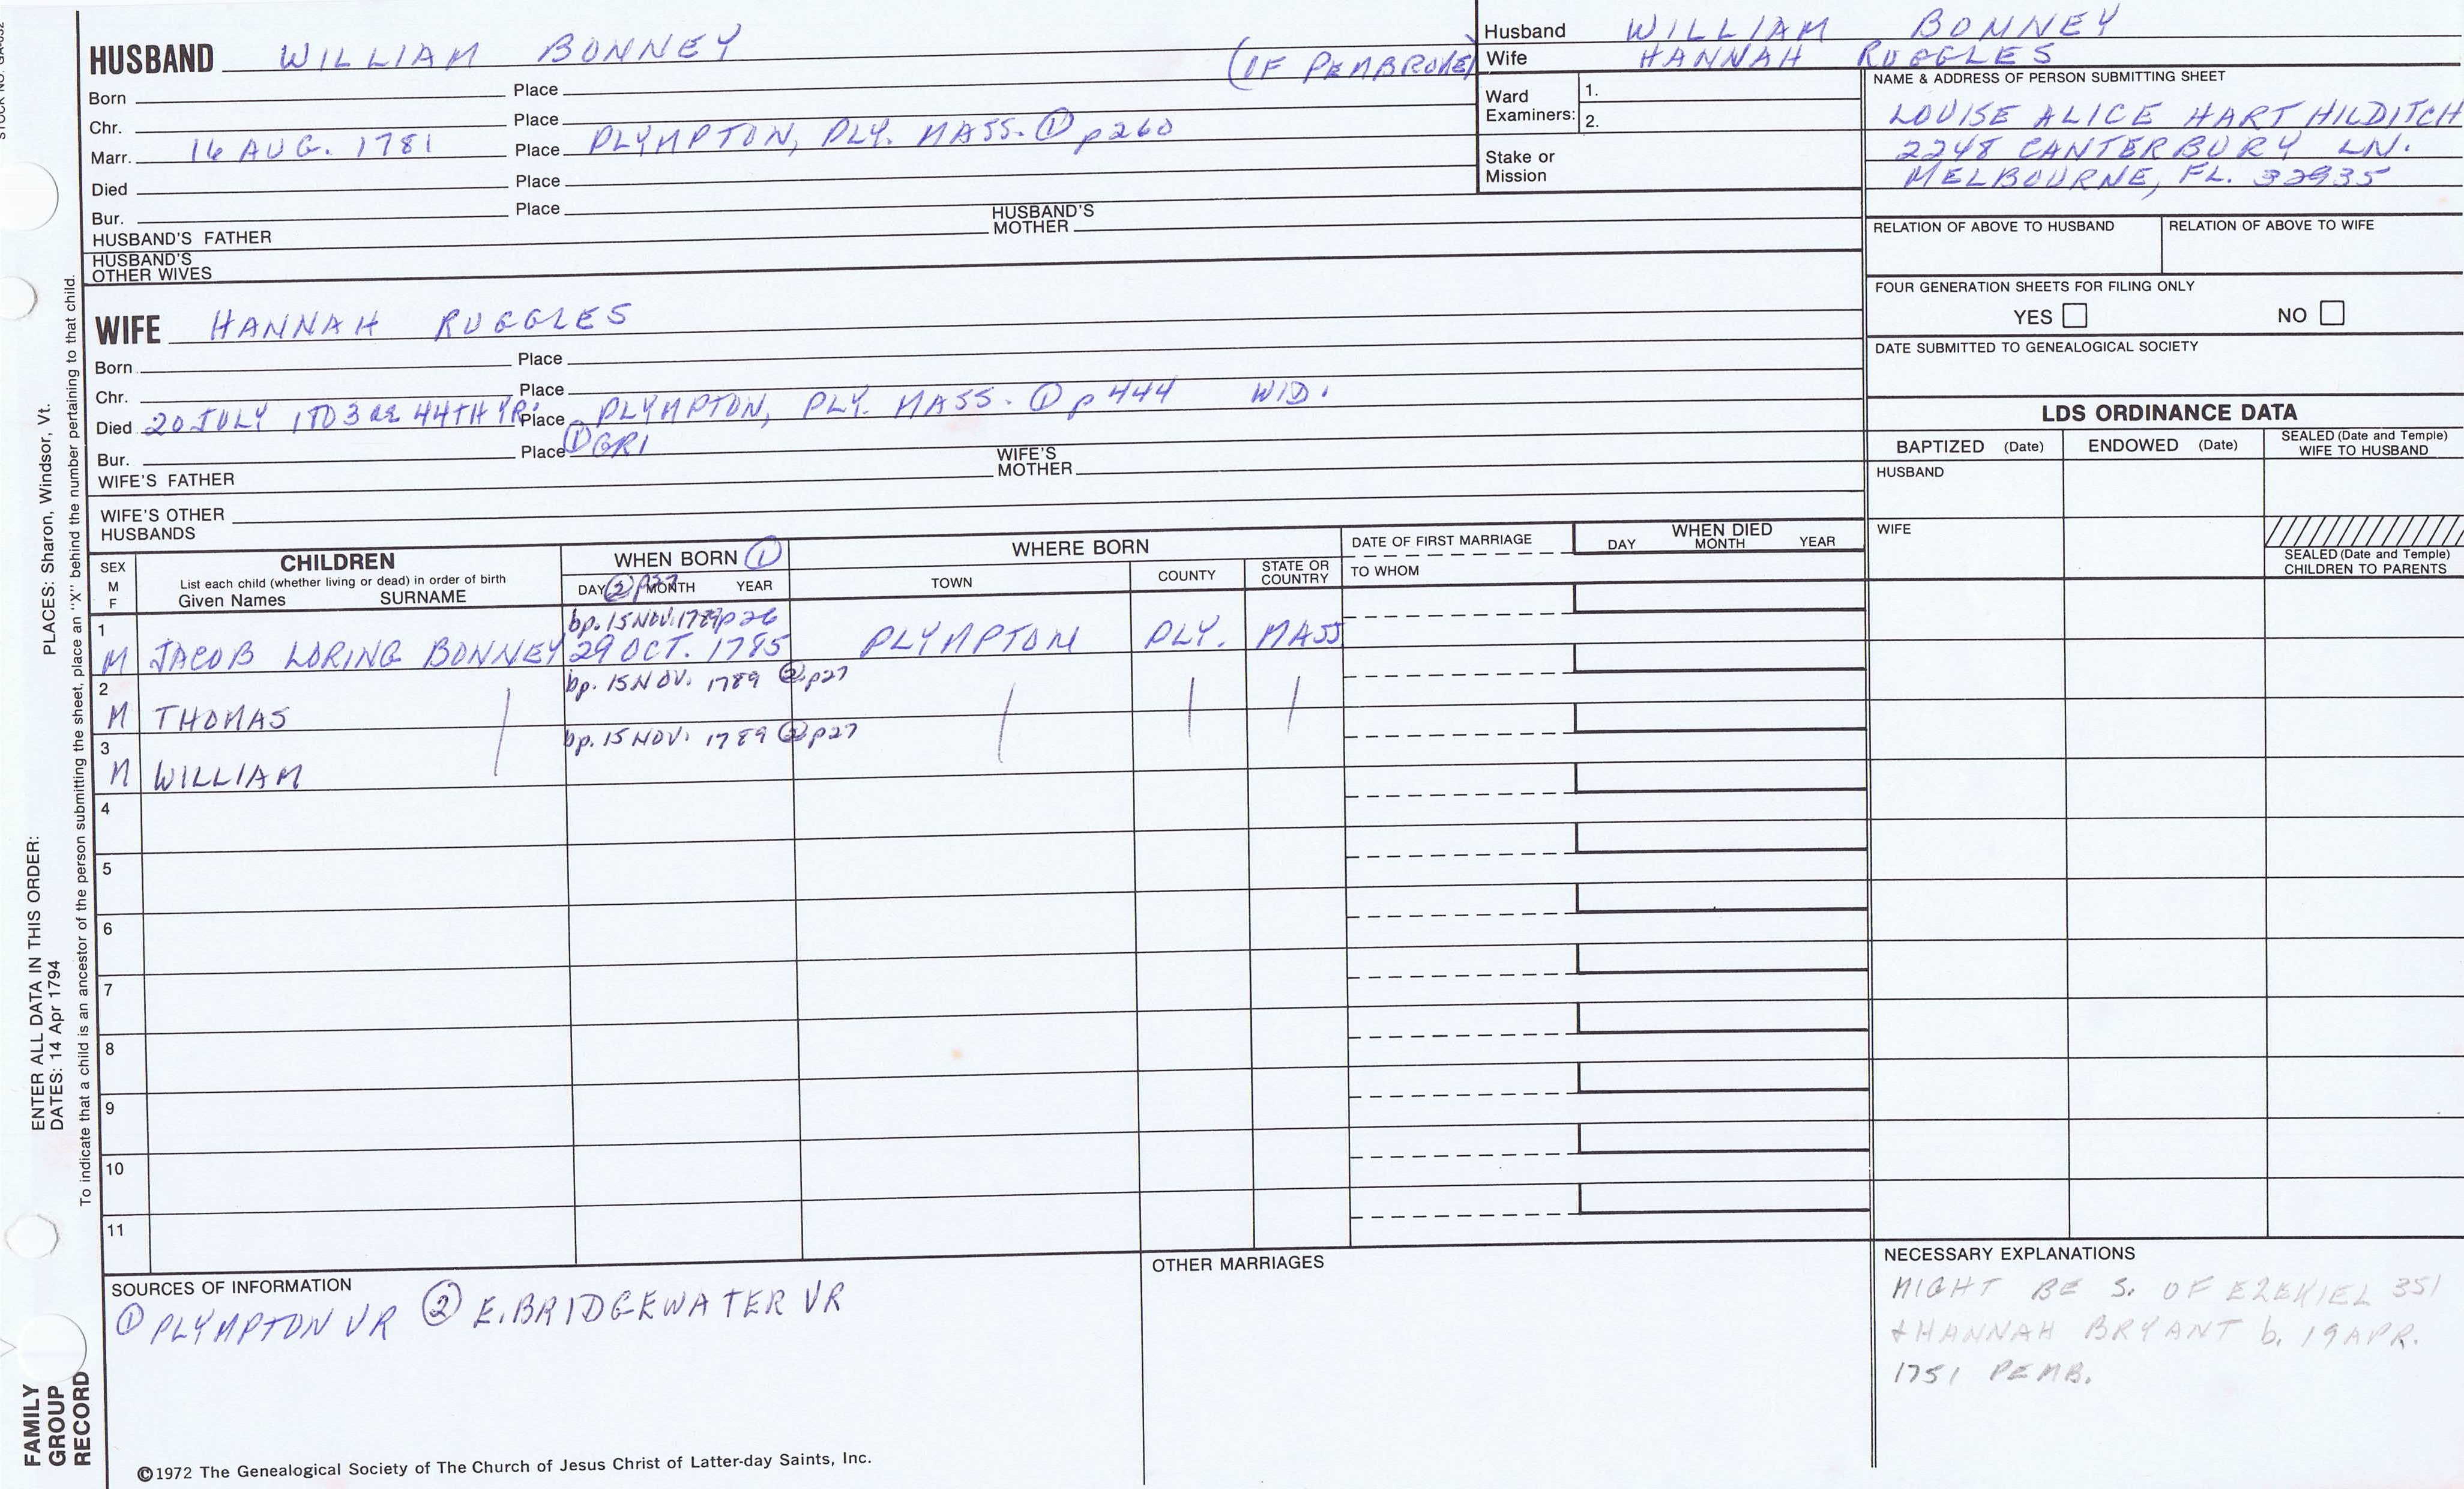 HUSBAND WILLIAM BONNEY (OF PEMBROKE)
Born Place
Chr. Place
Marr. 16 AUG. 1781 Place PLYMPTON, PLY. MASS. ① p260
Died Place
Bur. Place
HUSBAND'S FATHER HUSBAND'S MOTHER
HUSBAND'S OTHER WIVES
WIFE HANNAH RUGGLES
Born Place
Chr. Place
Died 20 JULY 44TH YR. Place PLYMPTON, PLY. MASS. ① p444 WID.
Bur. Place ① GR1
WIFE'S FATHER WIFE'S MOTHER
WIFE'S OTHER HUSBANDS
Husband WILLIAM BONNEY
Wife HANNAH RUGGLES
Ward Examiners: 1. 2.
Stake or Mission
NAME & ADDRESS OF PERSON SUBMITTING SHEET
LOUISE ALICE HART HILDITCH
2248 CANTERBURY LN.
MELBOURNE, FL. 32935
RELATION OF ABOVE TO HUSBAND RELATION OF ABOVE TO WIFE
FOUR GENERATION SHEETS FOR FILING ONLY
YES NO
DATE SUBMITTED TO GENEALOGICAL SOCIETY
LDS ORDINANCE DATA
BAPTIZED (Date) ENDOWED (Date) SEALED (Date and Temple) WIFE TO HUSBAND
HUSBAND
WIFE
SEALED (Date and Temple) CHILDREN TO PARENTS
SEX M F
CHILDREN
List each child (whether living or dead) in order of birth
Given Names SURNAME
WHEN BORN ①
DAY ② p27 MONTH YEAR
WHERE BORN
TOWN COUNTY STATE OR COUNTRY
DATE OF FIRST MARRIAGE
TO WHOM
WHEN DIED
DAY MONTH YEAR
1 bp. 15 NOV. 1789 p26
M JACOB LORING BONNEY 29 OCT. 1785 PLYMPTON PLY. MASS
2 bp. 15 NOV. 1789 ② p27
M THOMAS
3 bp. 15 NOV. 1789 ② p27
M WILLIAM
4
5
6
7
8
9
10
11
SOURCES OF INFORMATION
① PLYMPTON VR ② E. BRIDGEWATER VR
OTHER MARRIAGES
NECESSARY EXPLANATIONS
MIGHT BE S. OF EZEKIEL 351
+ HANNAH BRYANT b. 19 APR.
1751 PEMB.
©1972 The Genealogical Society of The Church of Jesus Christ of Latter-day Saints, Inc.
FAMILY GROUP RECORD
ENTER ALL DATA IN THIS ORDER:
DATES: 14 Apr 1794
PLACES: Sharon, Windsor, Vt.
To indicate that a child is an ancestor of the person submitting the sheet, place an "X" behind the number pertaining to that child.